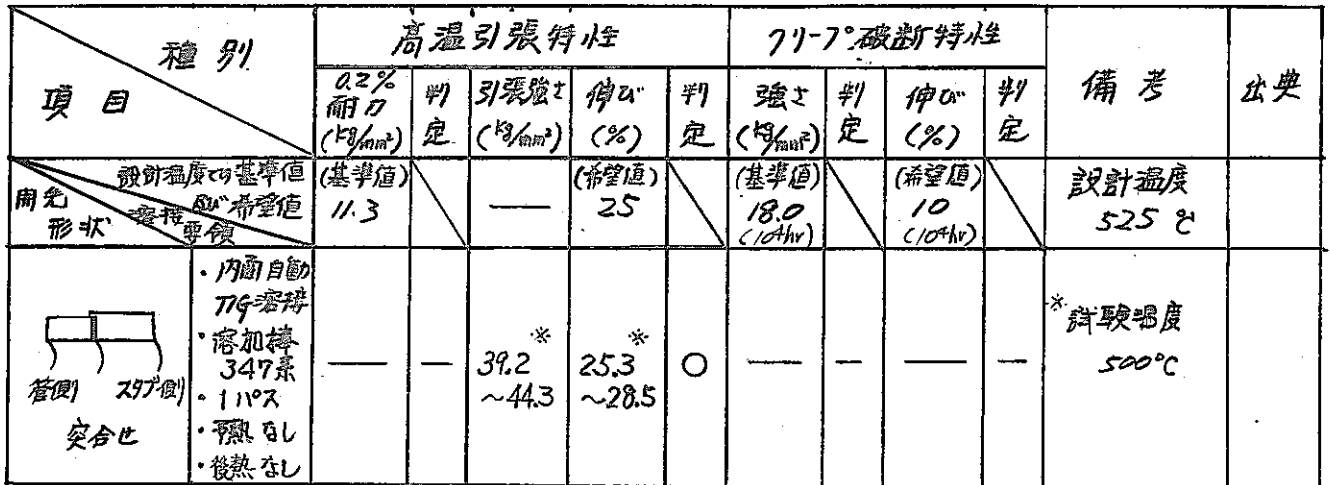 種別
項目
高温引張特性
クリープ破断特性
備考
出典
0.2%
耐力
(kg/mm²)
判
定
引張強さ
(kg/mm²)
伸び
(%)
判
定
強さ
(kg/mm²)
判
定
伸び
(%)
判
定
設計温度での基準値
及び希望値
溶接
要領
開先
形状
(基準値)
11.3
——
(希望値)
25
(基準値)
18.0
(10⁴hr)
(希望値)
10
(10⁴hr)
設計温度
525℃
管側
スタブ側
突合せ
・内面自動
TIG溶接
・溶加棒
347系
・1パス
・予熱なし
・後熱なし
——
—
※
39.2
~44.3
※
25.3
~28.5
○
——
—
——
—
※試験温度
500℃